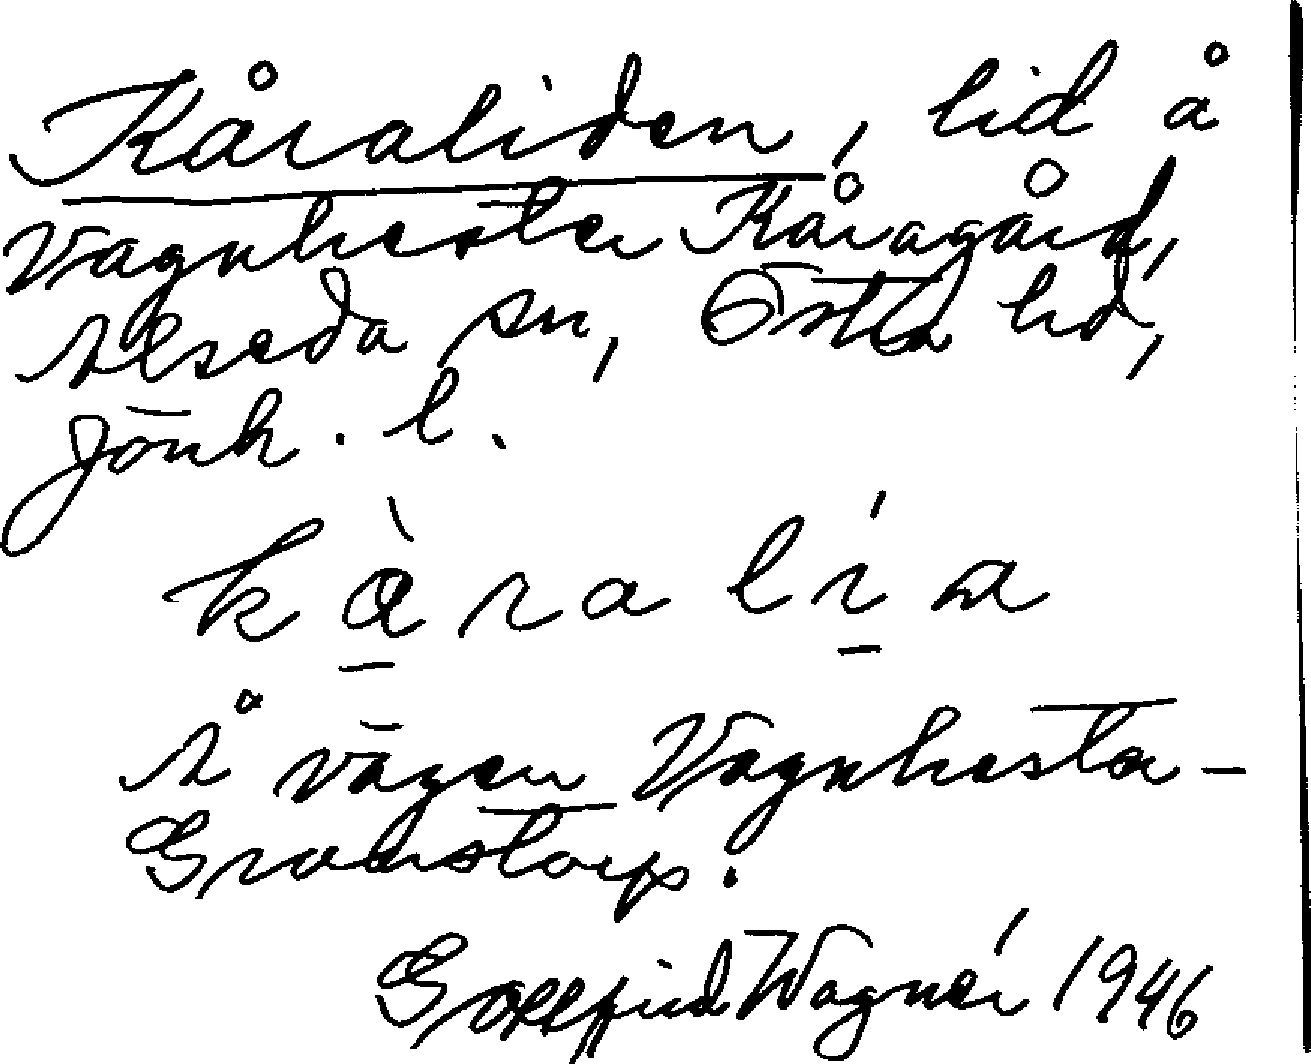 Kåraliden, lid å
Vagnhester Kåragård,
Alseda sn, Östra hd,
Jönk. l.
kàralía
Å vägen Vagnhesta-
Granstorp.
Gottfrid Wagnér 1946